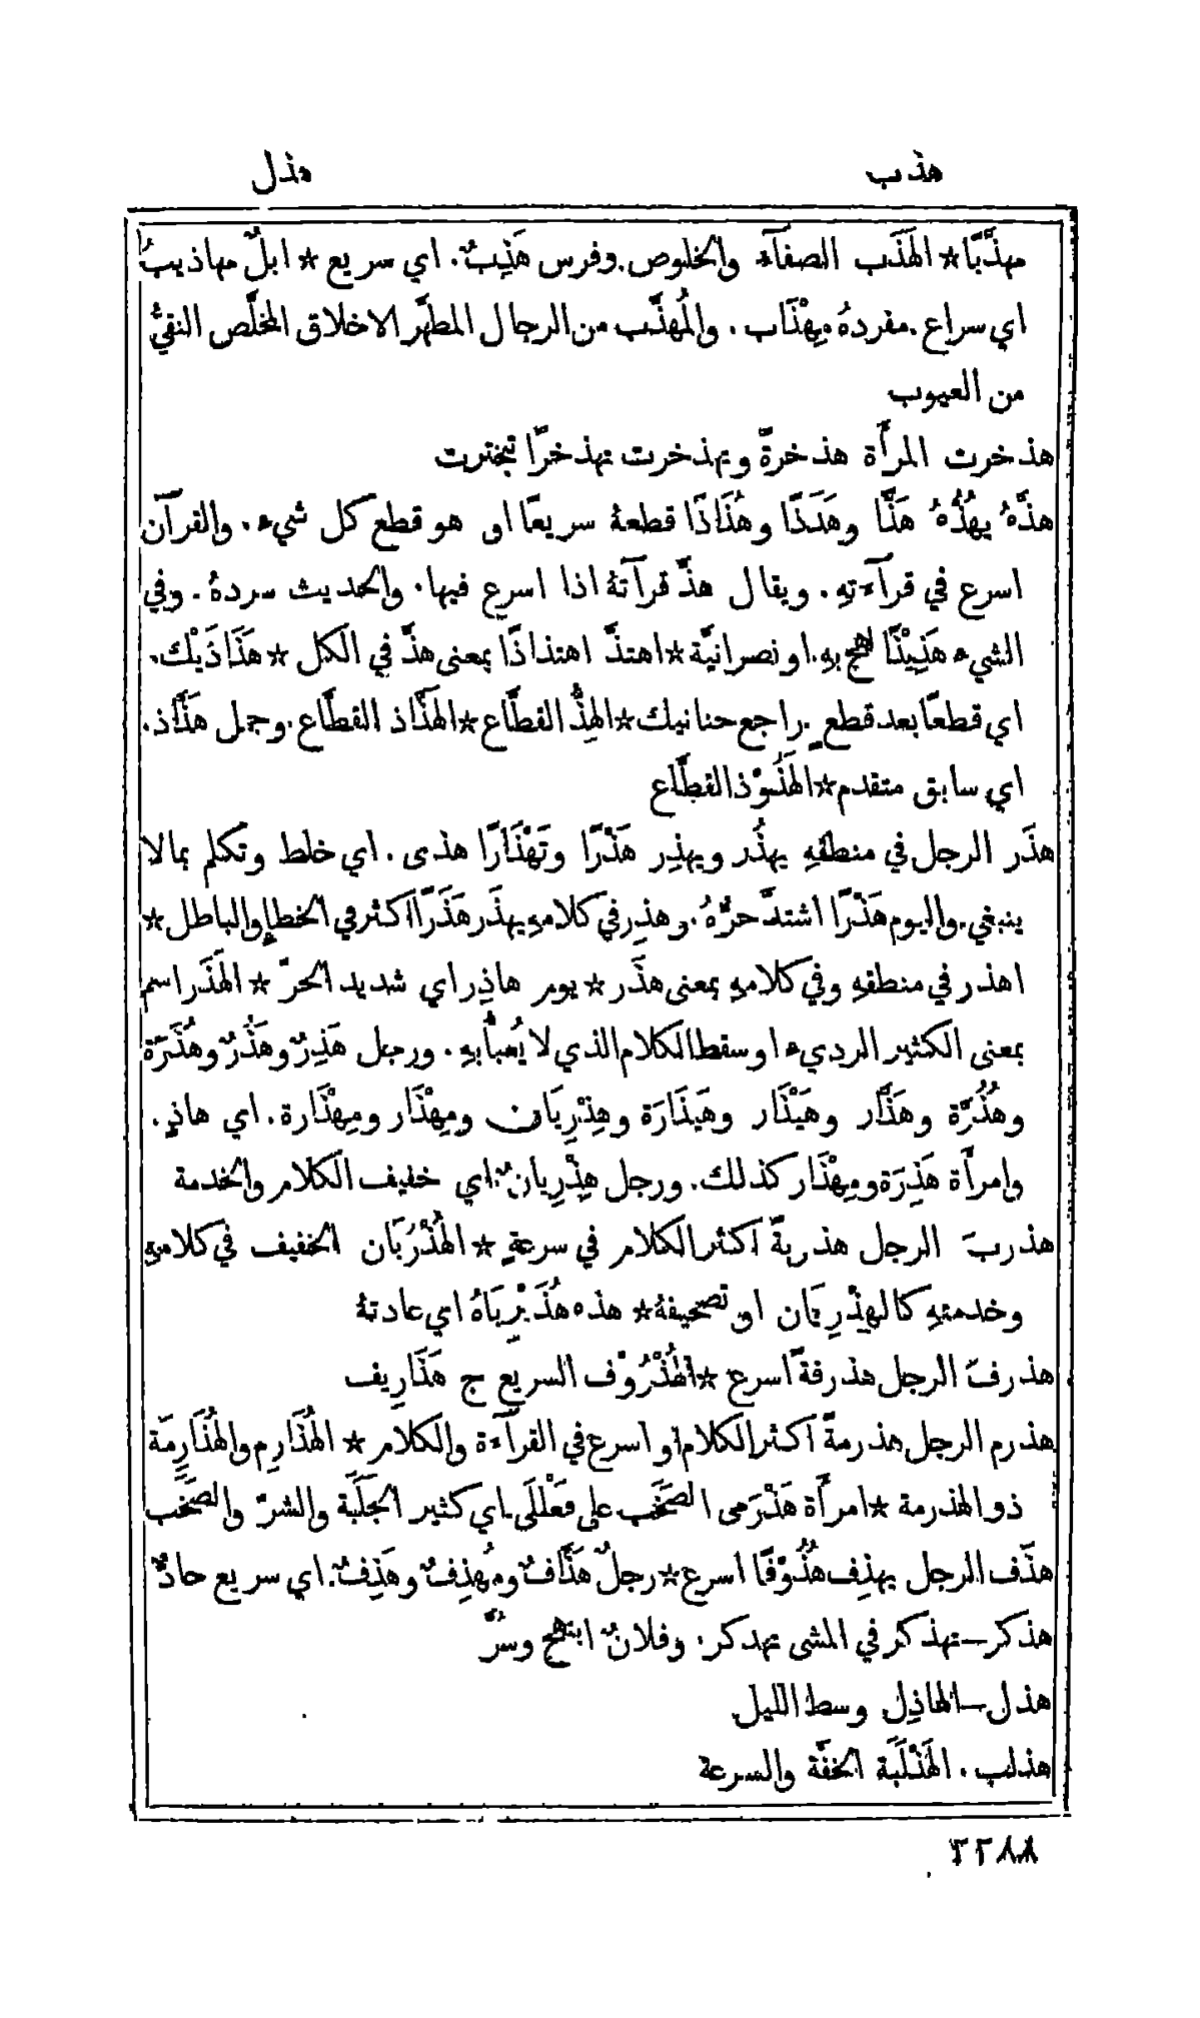 هذب
هذل
مهذَّبًا * الهَذَب الصفآء والخلوص. وفرس هَذِبٌ. اي سريع * ابلٌ مهاذيبُ
اي سراع. مفردهُ مِهْذَاب. والمُهذَّب من الرجال المطهَّر الاخلاق المخلَّص النقيُّ
من العيوب
هذخرت المرأَة هذخرةً وتهذخرت تهذخرًا تبخترت
هذَّهُ يهُذُّهُ هَذًّا وهَذَذًا وهُذَاذًا قطعهُ سريعًا او هو قطع كل شيء. والقرآن
اسرع في قرآءتهِ. ويقال هذَّ قرآتهُ اذا اسرع فيها. والحديث سردهُ. وفي
الشيء هَذِيْذًا لهج بهِ. او نصرانيَّة * اهتذَّ اهتذاذًا بمعنى هذَّ في الكل * هَذَاذَيْك.
اي قطعًا بعد قطعٍ. راجع حنانيك * الهِذُّ القطَّاع * الهَذَّاذ القطَّاع. وجمل هَذَّاذ.
اي سابق متقدم * الهَذُوْذ القطَّاع
هذَر الرجل في منطقهِ يهذُر ويهذِر هَذْرًا وتَهْذَارًا هذى. اي خلط وتكلم بما لا
ينبغي. واليوم هَذْرًا اشتدَّ حرُّهُ. وهذِر في كلامهِ يهذَر هَذَرًا اكثر في الخطإِ والباطل *
اهذر في منطقهِ وفي كلامهِ بمعنى هذَر * يوم هاذِر اي شديد الحرّ * الهَذَر اسم
بمعنى الكثير الرديء او سقط الكلام الذي لا يُعبأُ بهِ. ورجل هَذِرٌ وهَذُرٌ وهُذَرَة
وهُذُرَّة وهَذَّار وهَيْذَار وهَيْذَارَة وهِذْرِيَان ومِهْذَار ومِهْذَارة. اي هاذٍ.
وامرأَة هَذِرَة ومِهْذَار كذلك. ورجل هِذْرِيانٌ. اي خفيف الكلام والخدمة
هذربَ الرجل هذربةً اكثر الكلام في سرعةٍ * الهُذْرُبَان الخفيف في كلامهِ
وخدمتهِ كالهِذْرِيَان او تصحيفهُ * هذه هُذَيْرِبَاهُ اي عادتهُ
هذرفَ الرجل هذرفةً اسرع * الهُذْرُوْف السريع ج هَذَارِيف
هذرم الرجل هذرمةً اكثر الكلام او اسرع في القرآءة والكلام * الهُذَارِم والهُذَارِمَة
ذو الهذرمة * امرأَة هَذْرَمى الصَّخَب على فَعْلَلَى. اي كثير الجَلَبَة والشرّ والصَخَب
هذَف الرجل يهذِف هُذُوْفًا اسرع * رجلٌ هَذَّافٌ ومُهذِفٌ وهَذِفٌ. اي سريع حادٌّ
هذكر — تهذكر في المشى تهدكر. وفلانٌ ابتهج وسُرَّ
هذل — الهاذِل وسط الليل
هذلب. الهَذْلَبَة الخفَّة والسرعة
٢٢٨٨